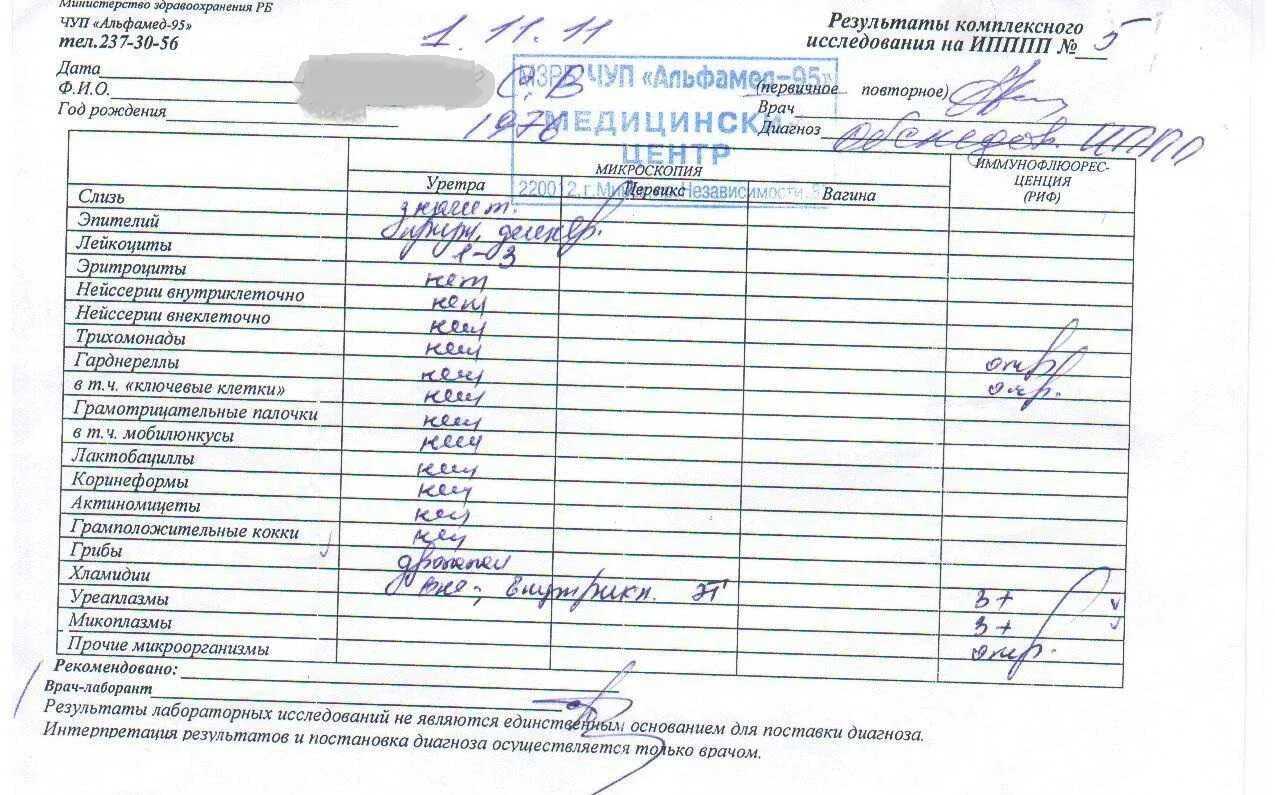 Министерство здравоохранения РБ
ЧУП «Альфамед-95»
тел.237-30-56
1.11.11
Результаты комплексного
исследования на ИПППП № 5
МЗРБ ЧУП «Альфамед-95»
МЕДИЦИНСКИЙ
ЦЕНТР
220012, г. Независимости, 8
Дата
Ф.И.О. С. В
Год рождения 1976
(первичное повторное)
Врач
Диагноз обследов. ИППП
МИКРОСКОПИЯ
ИММУНОФЛЮОРЕС-
ЦЕНЦИЯ
(РИФ)
Уретра Цервикс Вагина
Слизь значит.
Эпителий
Лейкоциты 1-3
Эритроциты нет
Нейссерии внутриклеточно нет
Нейссерии внеклеточно нет
Трихомонады нет отр
Гарднереллы нет отр.
в т.ч. «ключевые клетки» нет
Грамотрицательные палочки нет
в т.ч. мобилюнкусы нет
Лактобациллы нет
Коринеформы нет
Актиномицеты нет
Грамположительные кокки нет
Грибы
Хламидии вне-, внутрикл. ЭТ
Уреаплазмы 3+
Микоплазмы 3+
Прочие микроорганизмы отр.
Рекомендовано:
Врач-лаборант
Результаты лабораторных исследований не являются единственным основанием для поставки диагноза.
Интерпретация результатов и постановка диагноза осуществляется только врачом.